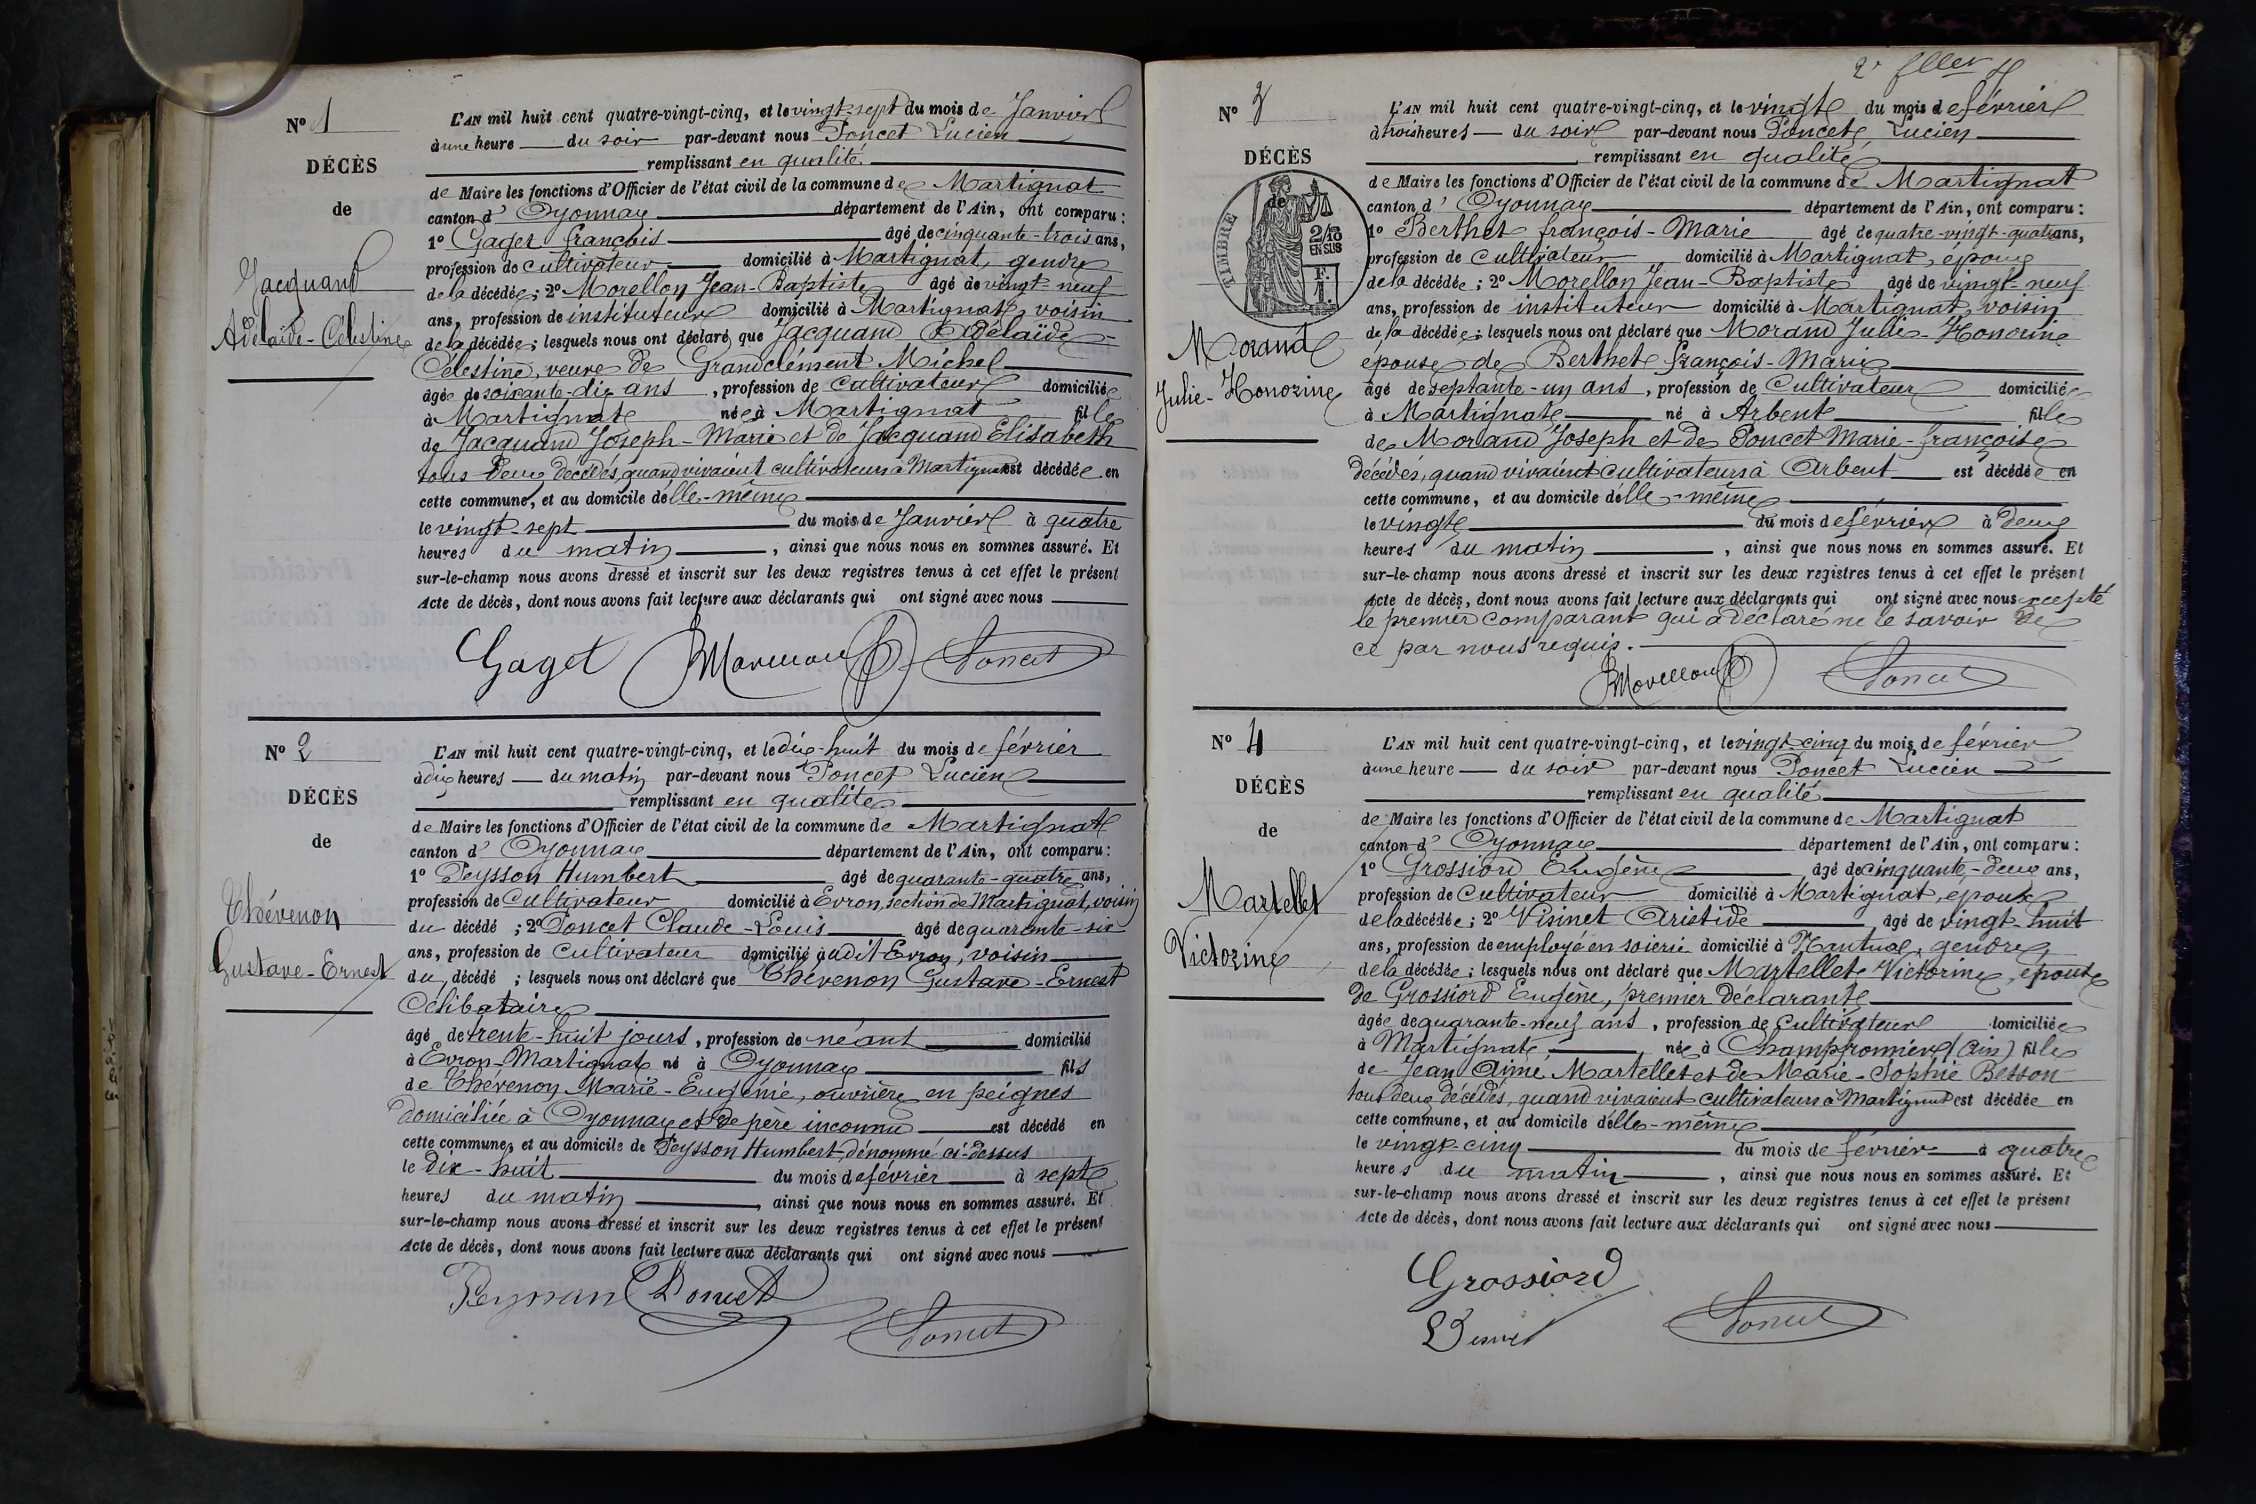 Nº 1
DÉCÈS
de
Jacquand
Adelaïde-Célestine
L'AN mil huit cent quatre-vingt-cinq, et le vingt-sept du mois de Janvier
à une heure du soir par-devant nous Poncet Lucien
remplissant en qualité
de Maire les fonctions d'Officier de l'état civil de la commune de Martignat
canton d' Oyonnax département de l'Ain, ont comparu :
1º Gaget françois âgé de cinquante-trois ans,
profession de cultivateur domicilié à Martignat, gendre
de la décédée ; 2º Morellon Jean-Baptiste âgé de vingt-neuf
ans, profession de instituteur domicilié à Martignat, voisin
de la décédée ; lesquels nous ont déclaré que Jacquand Adélaïde
Célestine, veuve de Grandclément Michel
âgée de soixante-dix ans, profession de cultivateur domiciliée
à Martignat née à Martignat fille
de Jacquand Joseph-Marie et de Jacquand Elisabeth
tous deux décédés, quand vivaient cultivateurs à Martignat est décédée en
cette commune, et au domicile d'elle-même
le vingt-sept du mois de Janvier à quatre
heures du matin, ainsi que nous nous en sommes assuré. Et
sur-le-champ nous avons dressé et inscrit sur les deux registres tenus à cet effet le présent
Acte de décès, dont nous avons fait lecture aux déclarants qui ont signé avec nous
Gaget Morellon Poncet
Nº 2
DÉCÈS
de
Thévenon
Gustave-Ernest
L'AN mil huit cent quatre-vingt-cinq, et le dix-huit du mois de février
à dix heures du matin par-devant nous Poncet Lucien
remplissant en qualité
de Maire les fonctions d'Officier de l'état civil de la commune de Martignat
canton d' Oyonnax département de l'Ain, ont comparu :
1º Peysson Humbert âgé de quarante-quatre ans,
profession de Cultivateur domicilié à Evron, section de Martignat, voisin
du décédé ; 2º Poncet Claude-Louis âgé de quarante-six
ans, profession de cultivateur domicilié audit Evron, voisin
du décédé ; lesquels nous ont déclaré que Thévenon Gustave-Ernest
Célibataire
âgé de trente-huit jours, profession de néant domicilié
à Evron-Martignat né à Oyonnax fils
de Thévenon Marie-Eugénie, ouvrière en peignes
domiciliée à Oyonnax et de père inconnu est décédé en
cette commune, et au domicile de Peysson Humbert, dénommé ci-dessus
le dix-huit du mois de février à sept
heures du matin, ainsi que nous nous en sommes assuré. Et
sur-le-champ nous avons dressé et inscrit sur les deux registres tenus à cet effet le présent
Acte de décès, dont nous avons fait lecture aux déclarants qui ont signé avec nous
Peysson Poncet
Poncet
Nº 3
DÉCÈS
de
TIMBRE
2/10
EN SUS
Morand
Julie-Honorine
L'AN mil huit cent quatre-vingt-cinq, et le vingt du mois de février
à trois heures du soir par-devant nous Poncet Lucien
remplissant en qualité
de Maire les fonctions d'Officier de l'état civil de la commune de Martignat
canton d' Oyonnax département de l'Ain, ont comparu :
1º Berthet françois-Marie âgé de quatre-vingt-quatre ans,
profession de cultivateur domicilié à Martignat, époux
de la décédée ; 2º Morellon Jean-Baptiste âgé de vingt-neuf
ans, profession de instituteur domicilié à Martignat, voisin
de la décédée ; lesquels nous ont déclaré que Morand Julie-Honorine
épouse de Berthet françois-Marie
âgé de septante-un ans, profession de Cultivateur domiciliée
à Martignat né à Arbent fille
de Morand Joseph et de Poncet Marie-françoise
décédés, quand vivaient cultivateurs à Arbent est décédée en
cette commune, et au domicile d'elle-même
le vingt du mois de février à deux
heures du matin, ainsi que nous nous en sommes assuré. Et
sur-le-champ nous avons dressé et inscrit sur les deux registres tenus à cet effet le présent
Acte de décès, dont nous avons fait lecture aux déclarants qui ont signé avec nous excepté
le premier comparant qui a déclaré ne le savoir de
ce par nous requis.
Morellon Poncet
Nº 4
DÉCÈS
de
Martellet
Victorine
L'AN mil huit cent quatre-vingt-cinq, et le vingt-cinq du mois de février
à une heure du soir par-devant nous Poncet Lucien
remplissant en qualité
de Maire les fonctions d'Officier de l'état civil de la commune de Martignat
canton d' Oyonnax département de l'Ain, ont comparu :
1º Grossiord Eugène âgé de cinquante-deux ans,
profession de cultivateur domicilié à Martignat, époux
de la décédée ; 2º Visinet Aristide âgé de vingt-huit
ans, profession de employé en soierie domicilié à Nantua, gendre
de la décédée ; lesquels nous ont déclaré que Martellet Victorine, épouse
de Grossiord Eugène, premier déclarant
âgée de quarante-neuf ans, profession de cultivateur domiciliée
à Martignat, née à Champfromier (Ain) fille
de Jean Aimé Martellet et de Marie-Sophie Besson
tous deux décédés, quand vivaient cultivateurs à Martignat est décédée en
cette commune, et au domicile d'elle-même
le vingt-cinq du mois de février à quatre
heures du matin, ainsi que nous nous en sommes assuré. Et
sur-le-champ nous avons dressé et inscrit sur les deux registres tenus à cet effet le présent
Acte de décès, dont nous avons fait lecture aux déclarants qui ont signé avec nous
Grossiord
Poncet